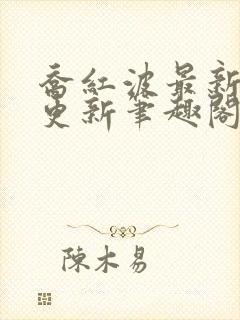 喬紅波最新
更新筆趣閣
陳木易